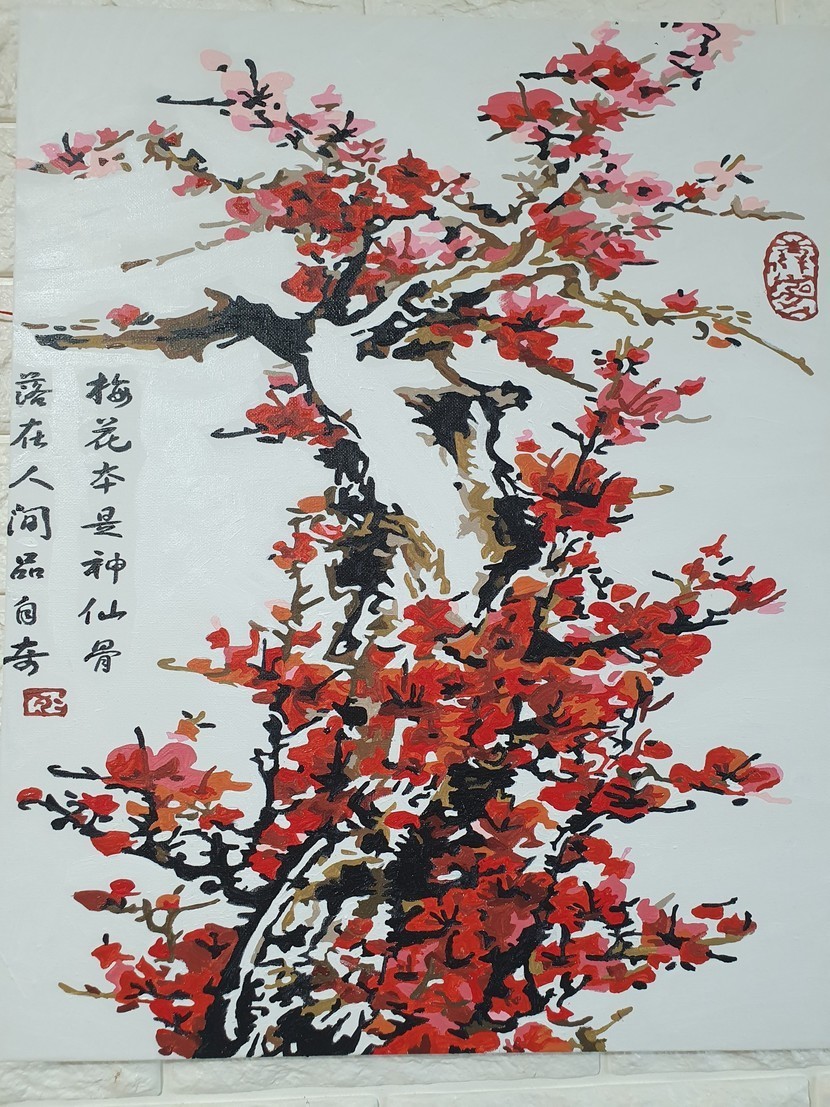 梅花本是神仙骨
落在人间品自奇